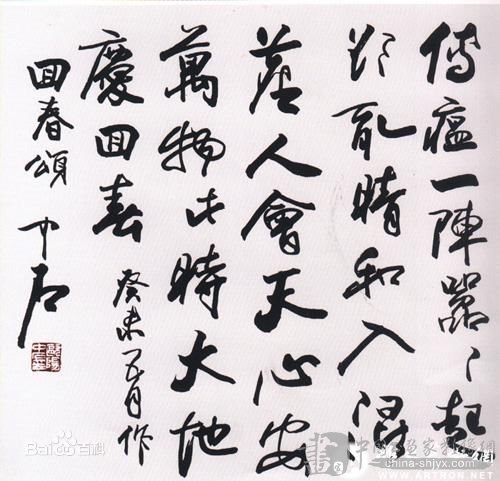 傳瘟一陣囂〻起
欲亂晴和入混
塵人會天心安
萬物此時大地
慶回春 癸未五月作
回春頌 中石
Bai百科
www.china-shjyx.com
WWW.ARTRON.NET